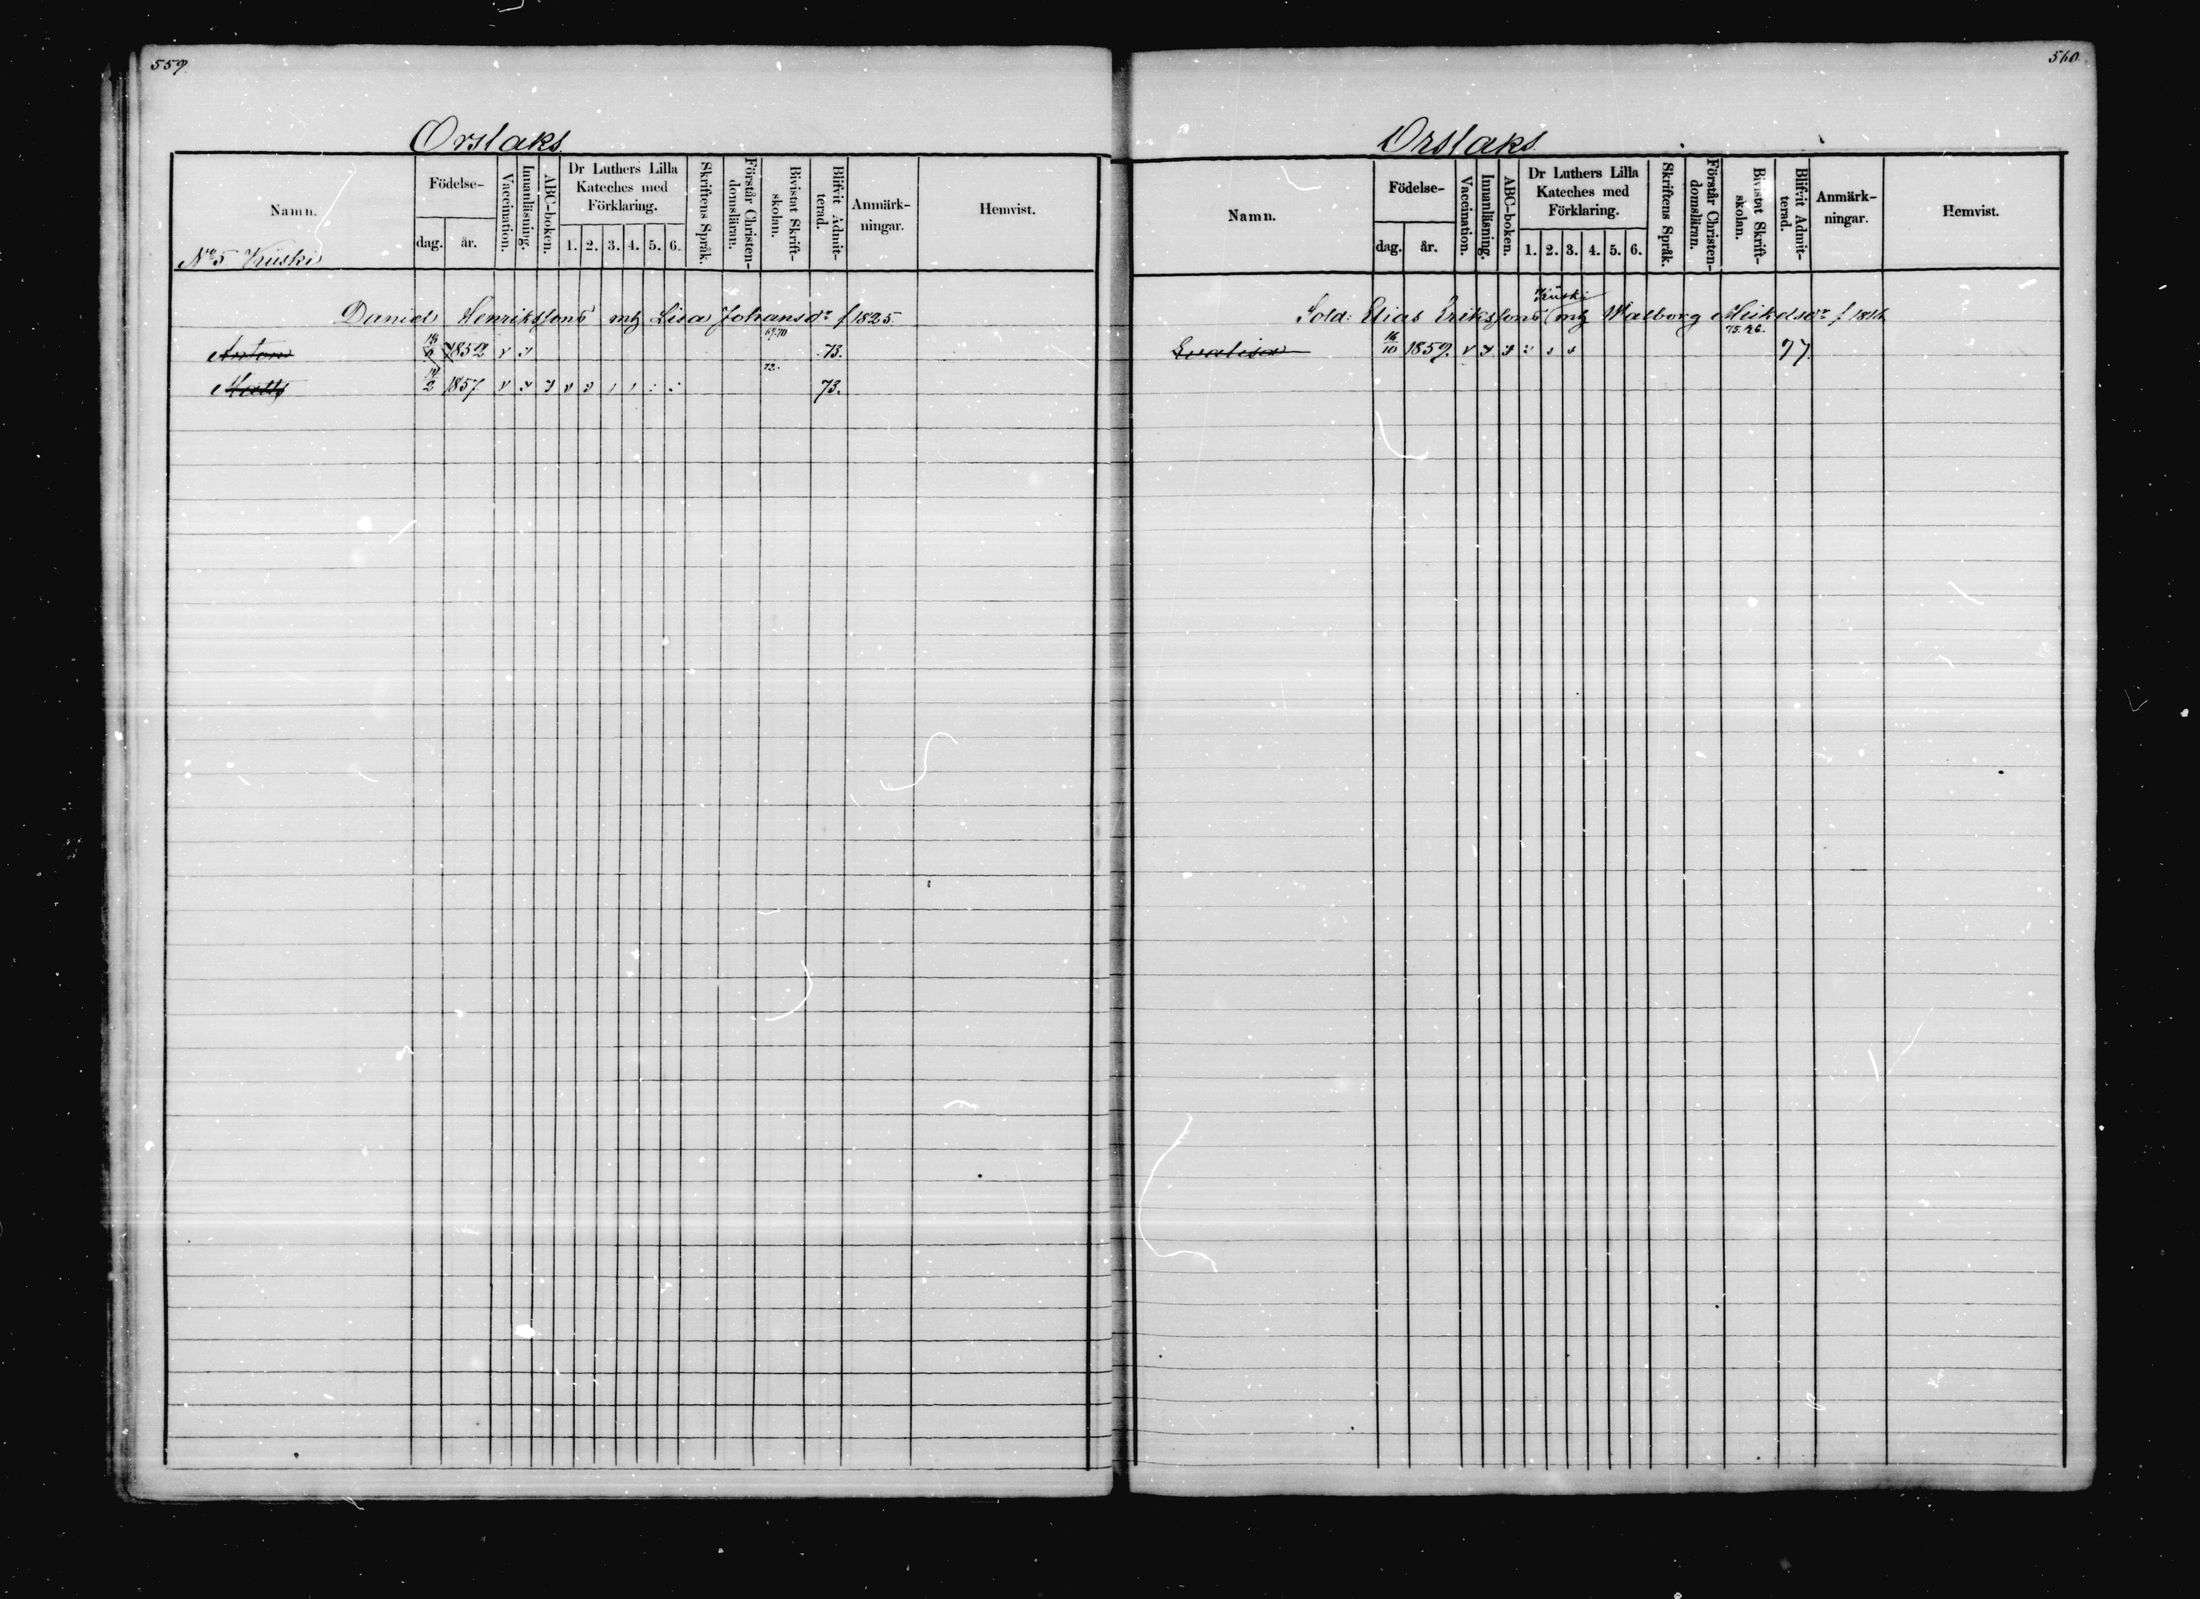 559.
Orslaks
Namn.
Födelse-
dag. år.
Vaccination.
Innanläsning.
ABC-boken.
Dr Luthers Lilla
Kateches med
Förklaring.
1. 2. 3. 4. 5. 6.
Skriftens Språk.
Förstår Christen-
domsläran.
Bivistat Skrift-
skolan.
Blifvit Admit-
terad.
Anmärk-
ningar.
Hemvist.
No 5 Kiuski
Daniel Henrikssons mtz Lisa Johansdr f 1825.
69.70
Anton 1852 73.
72.
Matts 2 1857 73.
560.
Orslaks
Namn.
Födelse-
dag. år.
Vaccination.
Innanläsning.
ABC-boken.
Dr Luthers Lilla
Kateches med
Förklaring.
1. 2. 3. 4. 5. 6.
Skriftens Språk.
Förstår Christen-
domsläran.
Bivistat Skrift-
skolan.
Blifvit Admit-
terad.
Anmärk-
ningar.
Hemvist.
Kiuski
Sold: Elias Erikssons (mtz Walborg Mickelsdr f 18
75.76.
Evalisa 16/10 1859. 77.